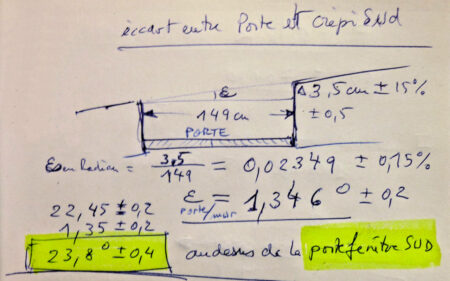 éccart entre Porte et crépi SUD
ε
3,5 cm ± 15%
149 cm
± 0,5
PORTE
ε en Radian = 3,5 / 149 = 0,02349 ± 0,15%
ε porte/mur = 1,346° ± 0,2
22,45 ± 0,2
1,35 ± 0,2
23,8° ± 0,4 au dessus de la porte fenêtre SUD